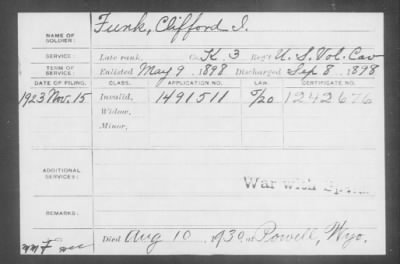 NAME OF SOLDIER: Funk, Clifford I.
SERVICE: Late rank, Co. K. 3 Reg't U. S. Vol. Cav
TERM OF SERVICE: Enlisted May 9, 1898 Discharged Sep 8, 1898
DATE OF FILING. CLASS. APPLICATION NO. LAW. CERTIFICATE NO.
1923 Nov. 15 Invalid, 1491511 1242676
Widow,
Minor,
ADDITIONAL SERVICES:
War with
REMARKS:
Died Aug 10, 1930, at Powell, Wyo.